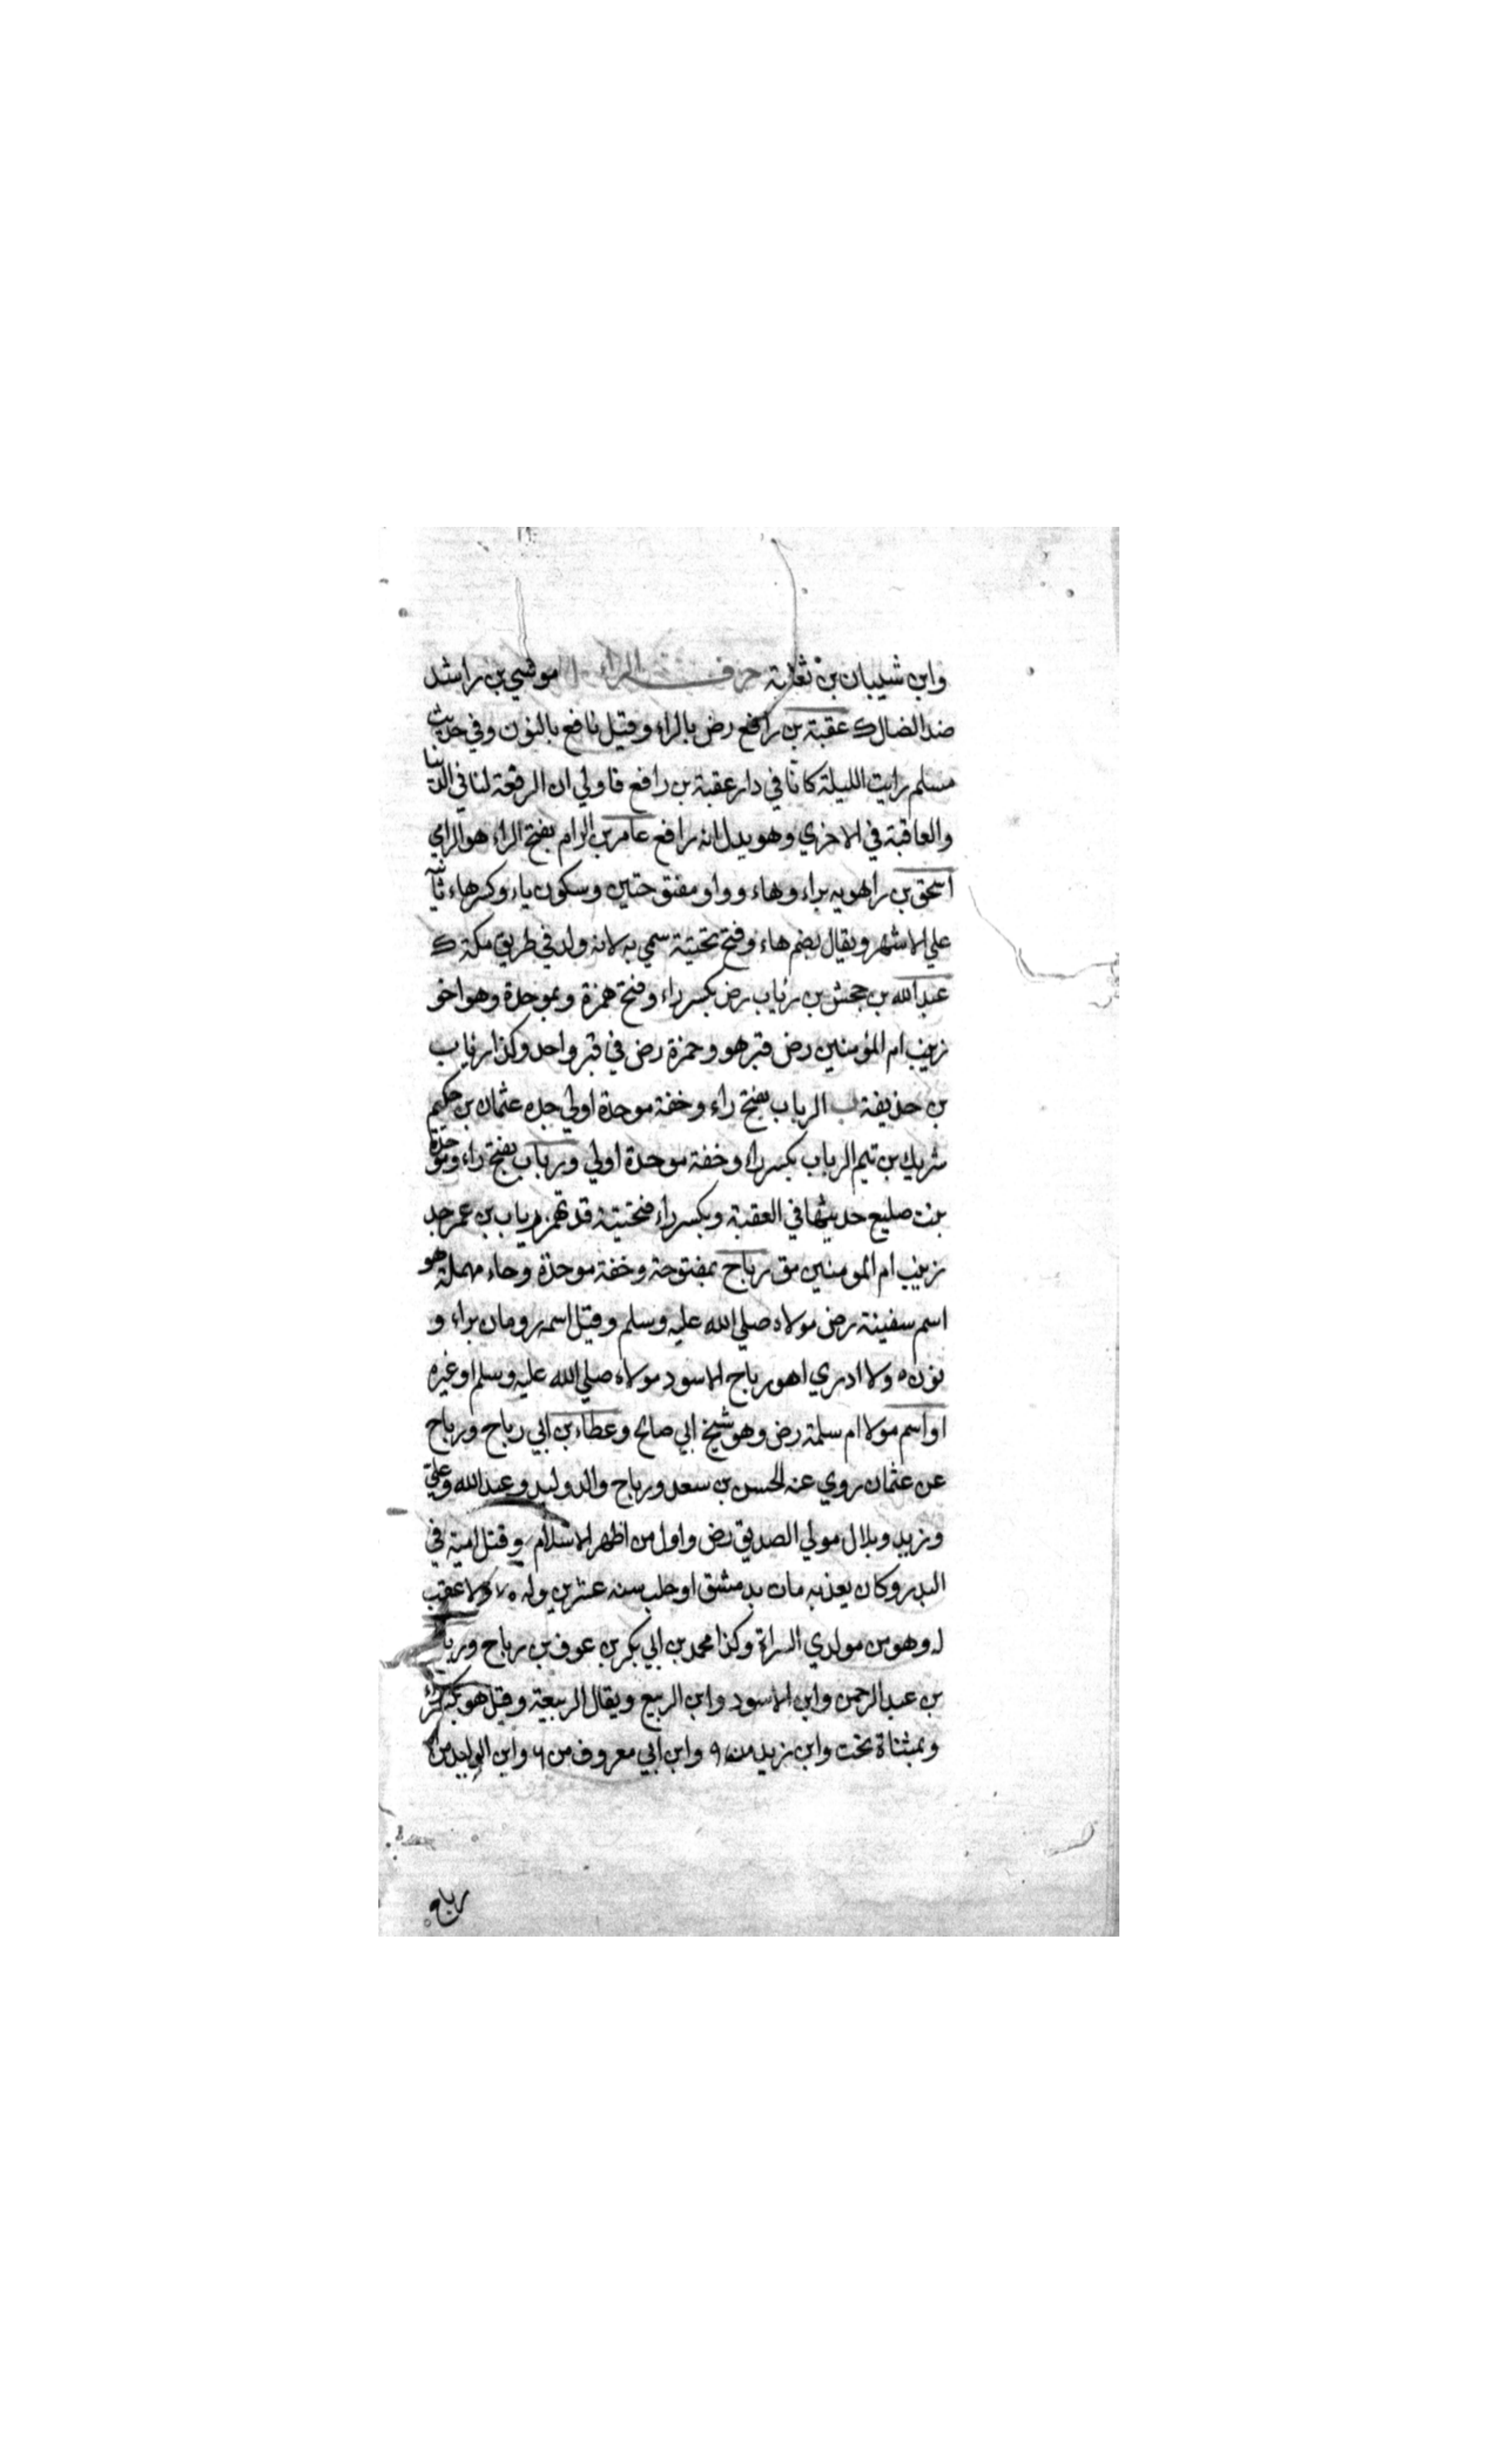 وابن شيبان بن ثعلبة حرف الراء موسي بن راشد
ضد الضال ک عقبة بن رافع رض بالراء وقيل نافع بالنون وفي حديث
مسلم رايت الليلة كانا في دار عقبة بن رافع فاولي ان الرفعة لنا في الدنيا
والعاقبة في الاخري وهو يدل انه رافع عامر بن الرام بفتح الراء هو الرامي
اسحق بن راهويه براء وهاء وواو مفتوحتين وسكون ياء وكسر هاء ثانيه
علي الاشهر ويقال بضم هاء وفتح تحتية سمي به لانه ولد في طريق مكة ک
عبد الله بن جحش بن رئاب رض بكسر راء وفتح همزة وبموحدة وهو اخو
زينب ام المؤمنين رض قبر هو وحمزة رض في قبر واحد وكذا رئاب
بن حذيفة الرباب بفتح راء وخفة موحدة اولي جده عثمان بن حكيم
شريك بن تيم الرباب بكسر راء وخفة موحدة اولي ورباب بفتح راء وموحدة
بنت صليع حديثها في العقبة وبكسر راء فتحتية قد تهمز رياب بن عمر جد
زينب ام المومنين مق رباح بمفتوحة وخفة موحدة وحاء مهملة هو
اسم سفينة رض مولاه صلي الله عليه وسلم وقيل اسمه رومان براء و
نون ه ولا ادري اهو رباح الاسود مولاه صلي الله عليه وسلم او غيره
او اسم مولا ام سلمة رض وهو شيخ ابي صالح وعطاء بن ابي رباح ورباح
عن عثمان روي عنه الحسن بن سعد ورباح والد وليد وعبد الله وعلي
وزيد وبلال مولي الصديق رض واول من اظهر الاسلام وقتل امية في
البدر وكان يعذبه مات بدمشق او حلب سنه عشرين وله ولا عقب
له وهو من مولدي السراة وكذا محمد بن ابي بكر بن عوف بن رباح ورباح
بن عبد الرحمن وابن الاسود وابن الربيع ويقال الربيعة وقيل هو بكسر راء
وبمثناة تحت وابن زيد من ٩ وابن ابي معروف من ٦ وابن الوليد من
رباح